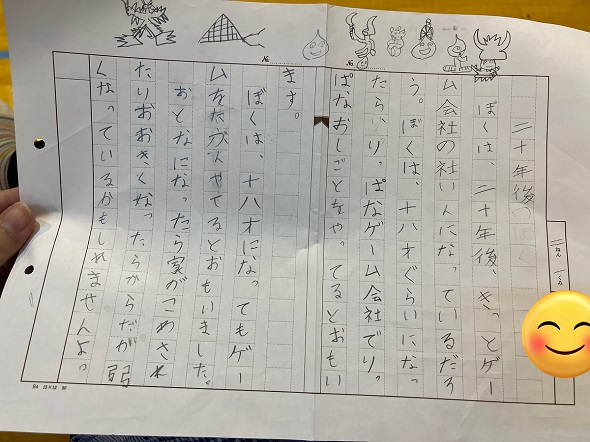 二十年後
ぼくは、二十年後、きっとゲー
ム会社の社いんになっているだろ
う。ぼくは、十八才ぐらいになっ
たら、りっぱなゲーム会社でりっ
ぱなおしごとをやってるとおもい
ます。
ぼくは、十八才になってもゲー
ムをたぶんやてるとおもいました。
おとなになったら家がこめされ
たりおおきくなったらからだが弱
くなっているかもしれませんよっ。
No.
No.
ねん